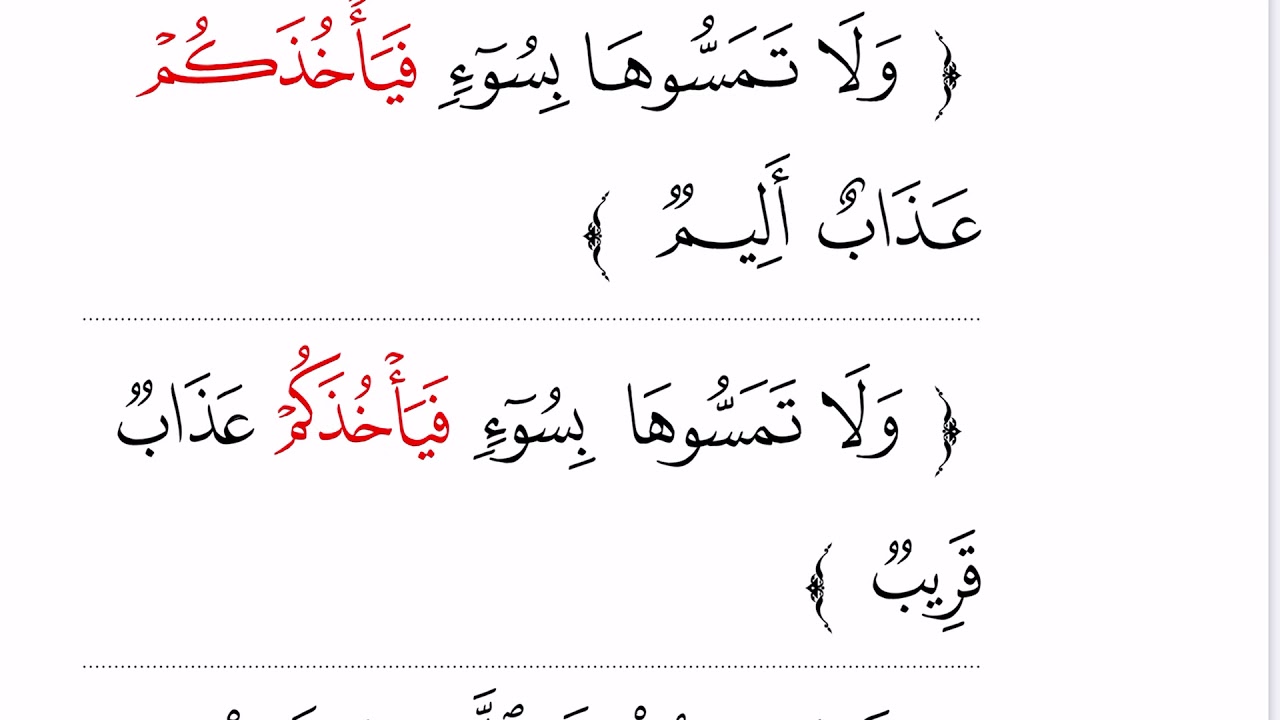 ﴿ وَلَا تَمَسُّوهَا بِسُوٓءٍ فَيَأۡخُذَكُمۡ
عَذَابٌ أَلِيمٞ ﴾
﴿ وَلَا تَمَسُّوهَا بِسُوٓءٍ فَيَأۡخُذَكُمۡ عَذَابٞ
قَرِيبٞ ﴾